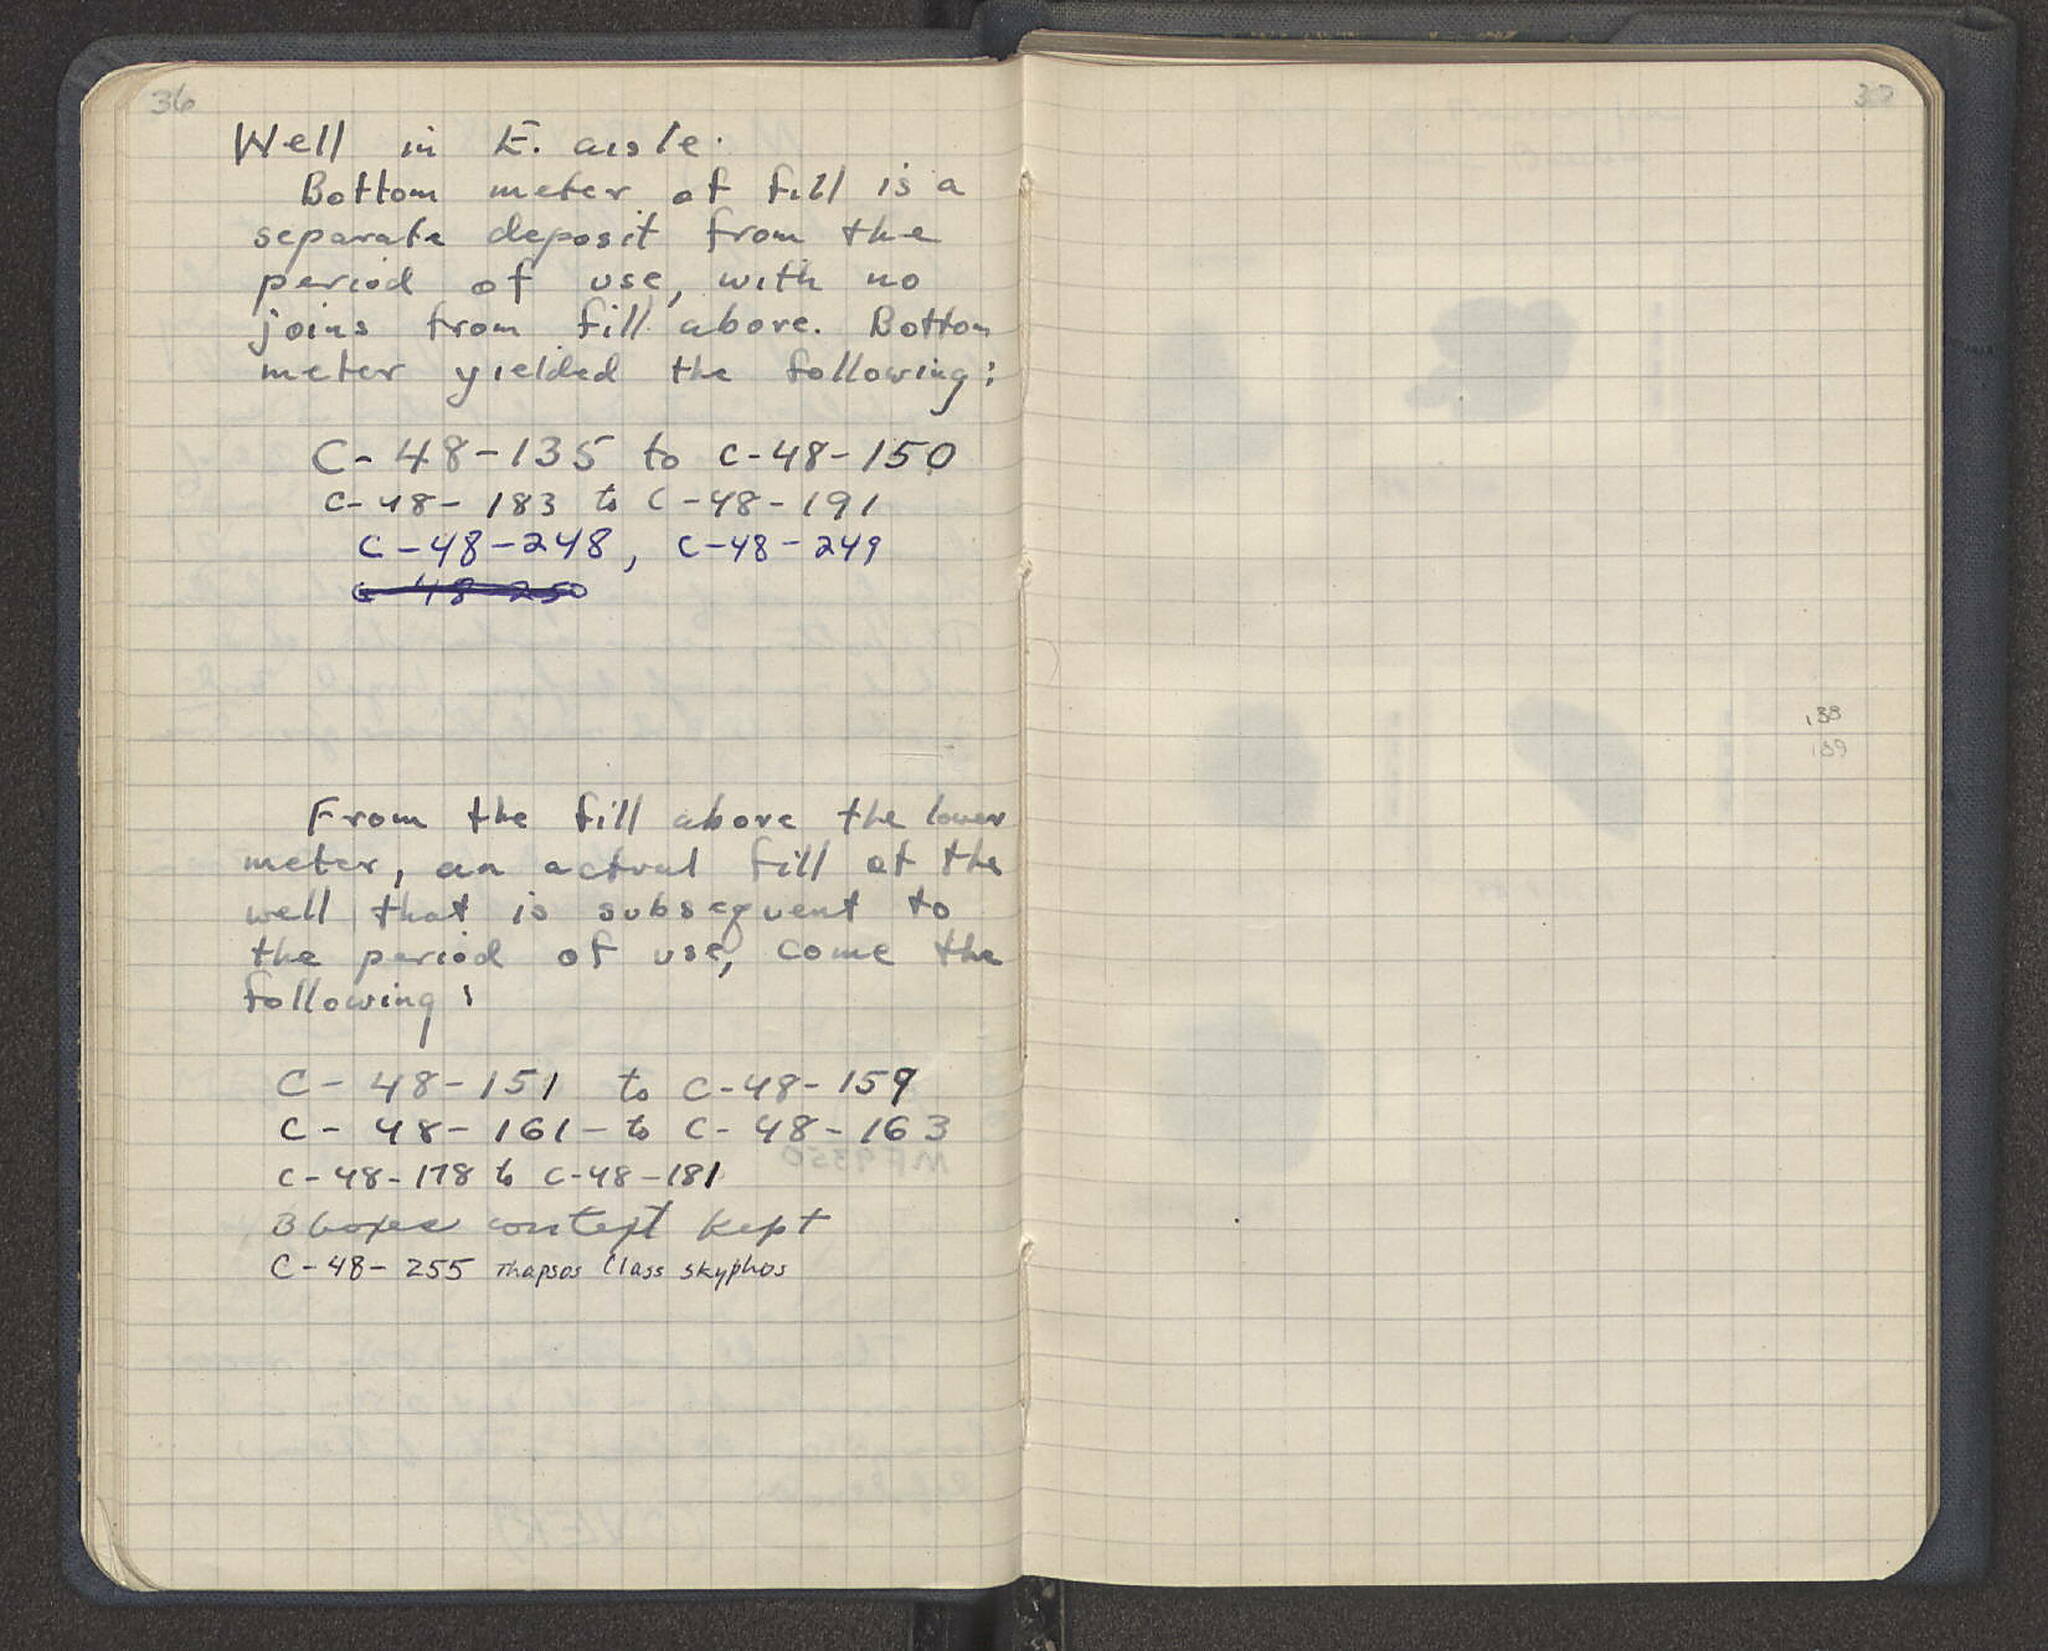 36
Well in E. aisle.
Bottom meter of fill is a
separate deposit from the
period of use, with no
joins from fill above. Bottom
meter yielded the following:
C-48-135 to C-48-150
C-48-183 to C-48-191
C-48-248, C-48-249
C-48-250
From the fill above the lower
meter, an actual fill of the
well that is subsequent to
the period of use, come the
following:
C-48-151 to C-48-159
C-48-161-to C-48-163
C-48-178 to C-48-181
3 boxes context kept
C-48-255 Thapsos Class skyphos
37
138
189